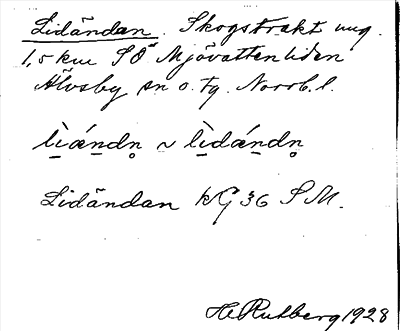 Lidändan. Skogstrakt ung.
1,5 km SÖ Mjövattenliden
Älvsby sn o. tg. Norrb. l.
lìǽndn̥ ~ lìdǽndn̥
Lidändan kG 36 SM.
H. Rutberg 1928